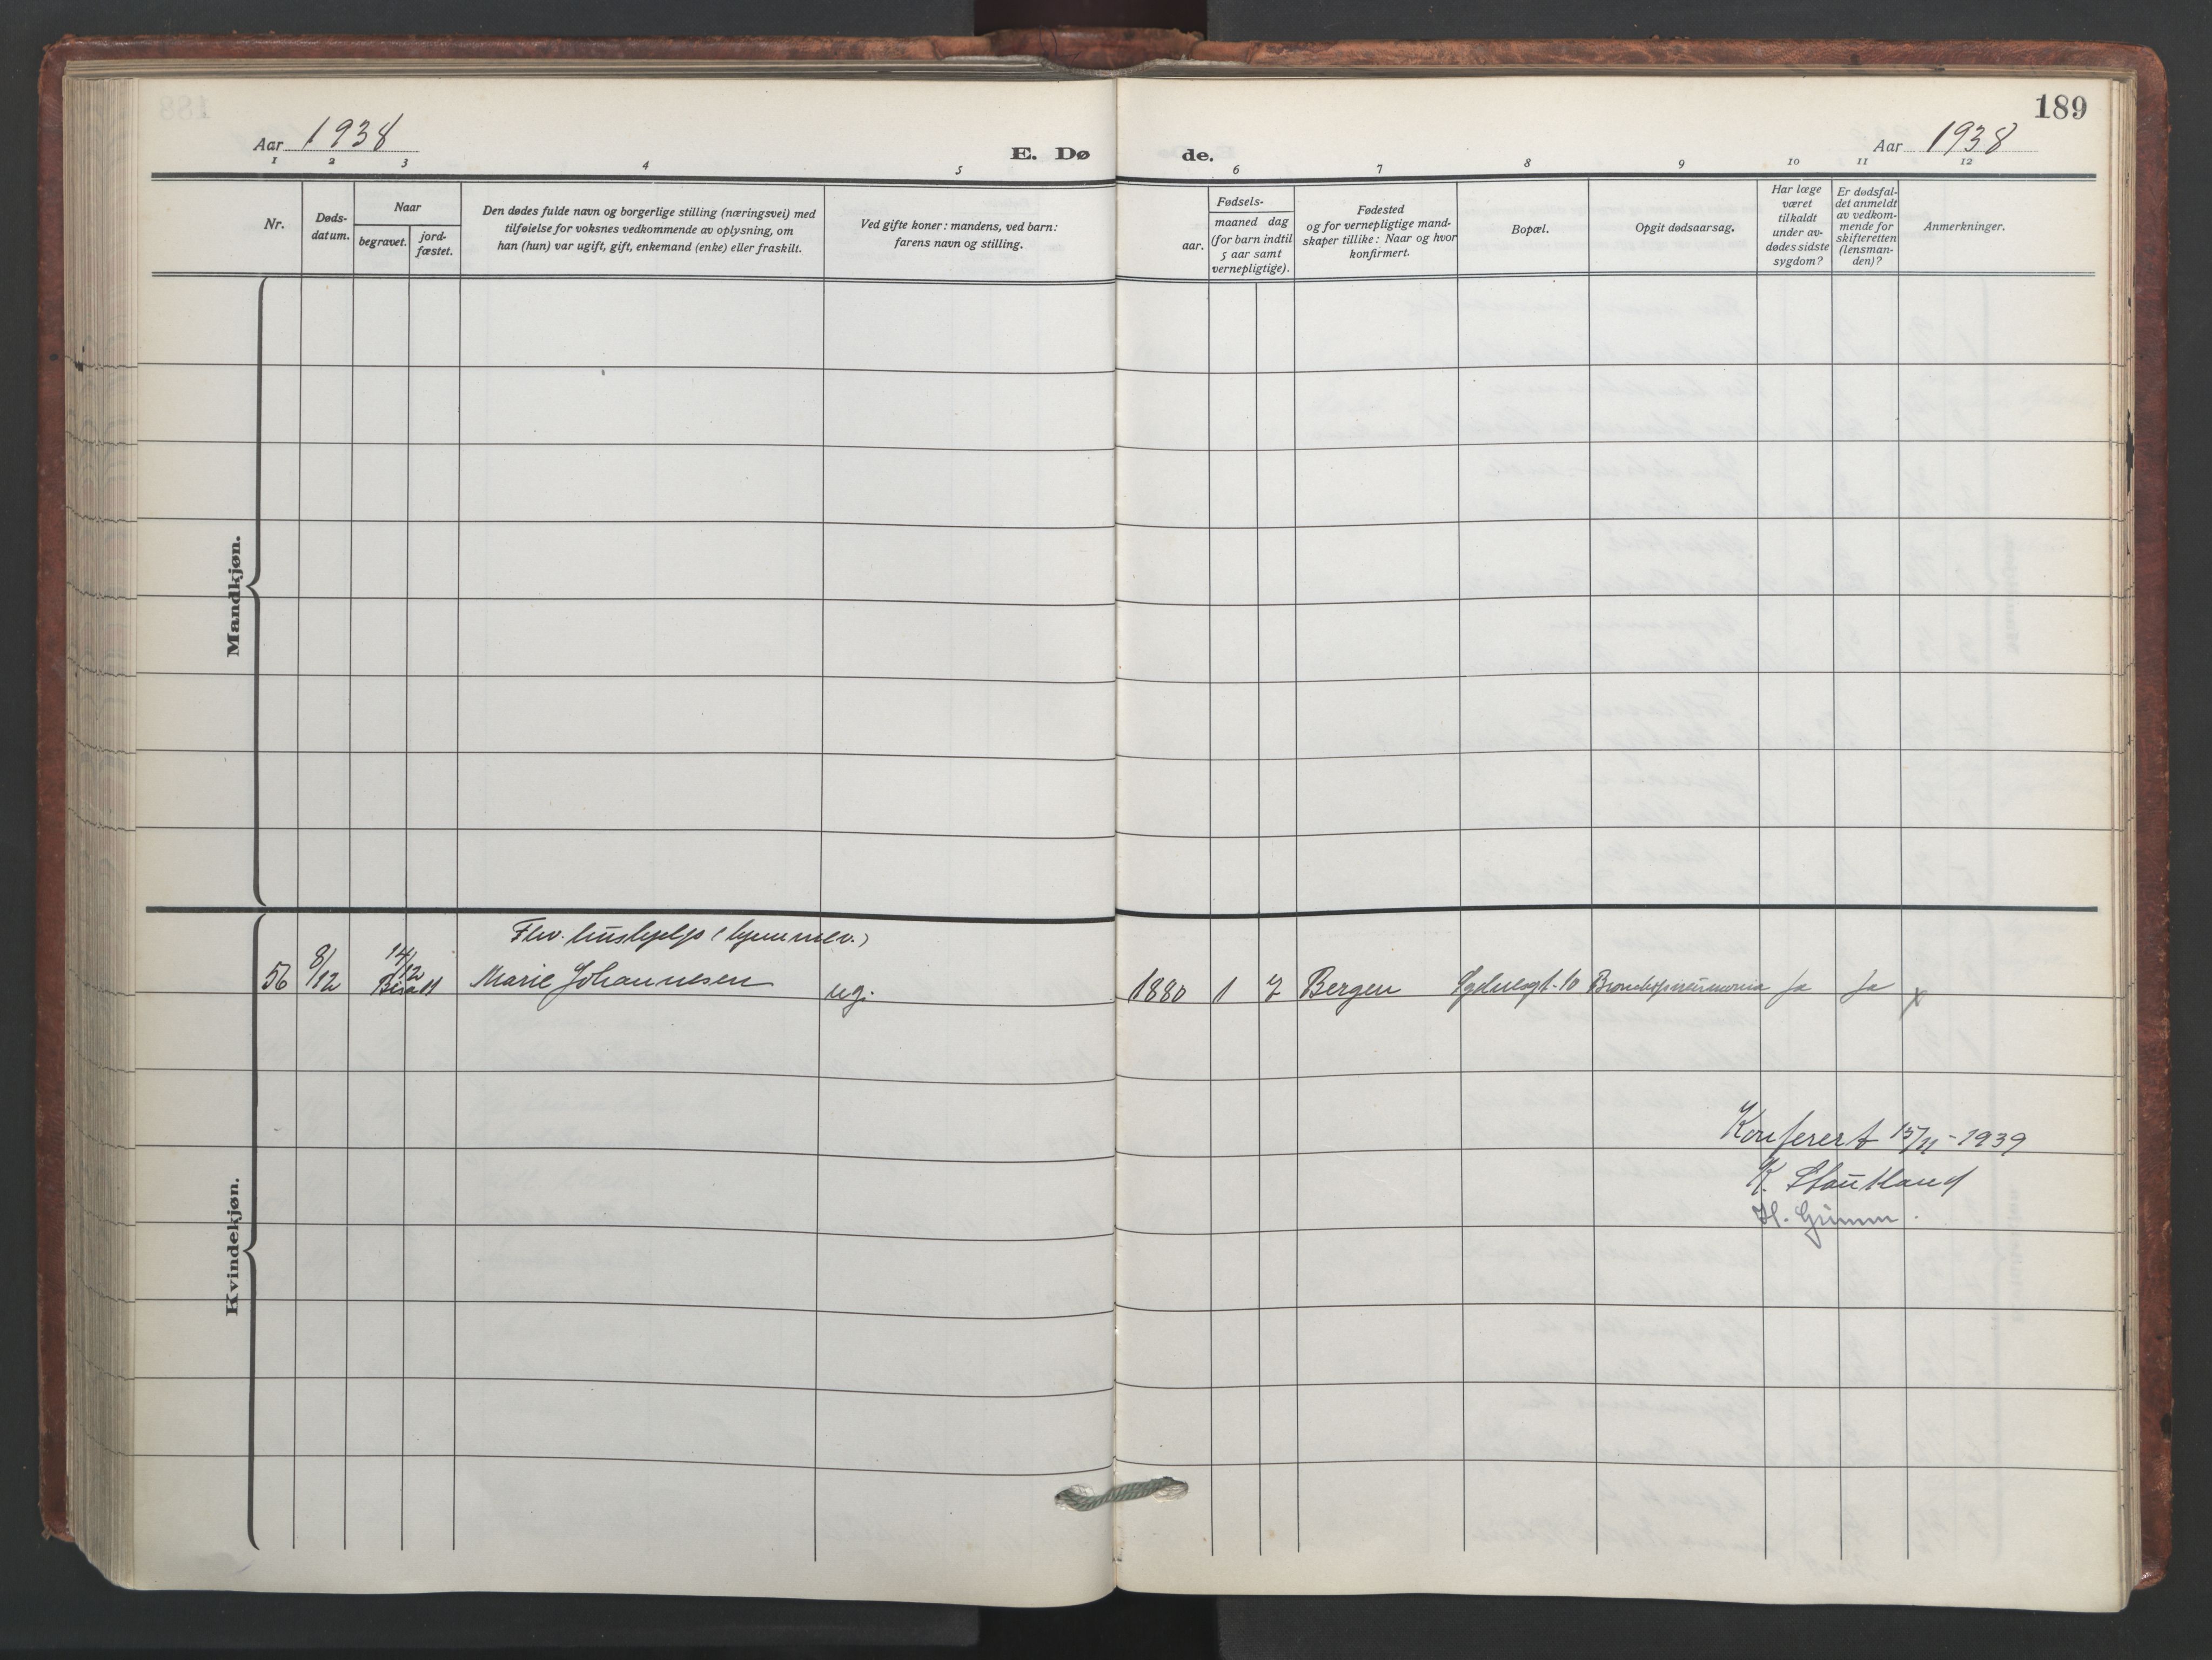 189
Aar 1938
E. Dø de.
Aar 1938
1 2 3 4 5 6 7 8 9 10 11 12
Nr.
Døds-
datum.
Naar
begravet.
jord-
fæstet.
Den dødes fulde navn og borgerlige stilling (næringsvei) med
tilføielse for voksnes vedkommende av oplysning, om
han (hun) var ugift, gift, enkemand (enke) eller fraskilt.
Ved gifte koner: mandens, ved barn:
farens navn og stilling.
Fødsels-
aar.
maaned dag
(for barn indtil
5 aar samt
vernepligtige).
Fødested
og for vernepligtige mand-
skaper tillike: Naar og hvor
konfirmert.
Bopæl.
Opgit dødsaarsag.
Har læge
været
tilkaldt
under av-
dødes sidste
sygdom?
Er dødsfal-
det anmeldt
av vedkom-
mende for
skifteretten
(lensman-
den)?
Anmerkninger.
Mandkjøn.
Kvindekjøn.
Flev. hushjelp
56 8/12 14/12 Marie Johannesen ug. 1880 1 7 Bergen 10 Bronchopneumonia Ja Ja x
Konferert 15/11-1939
K. Stautland
H. Grimm.